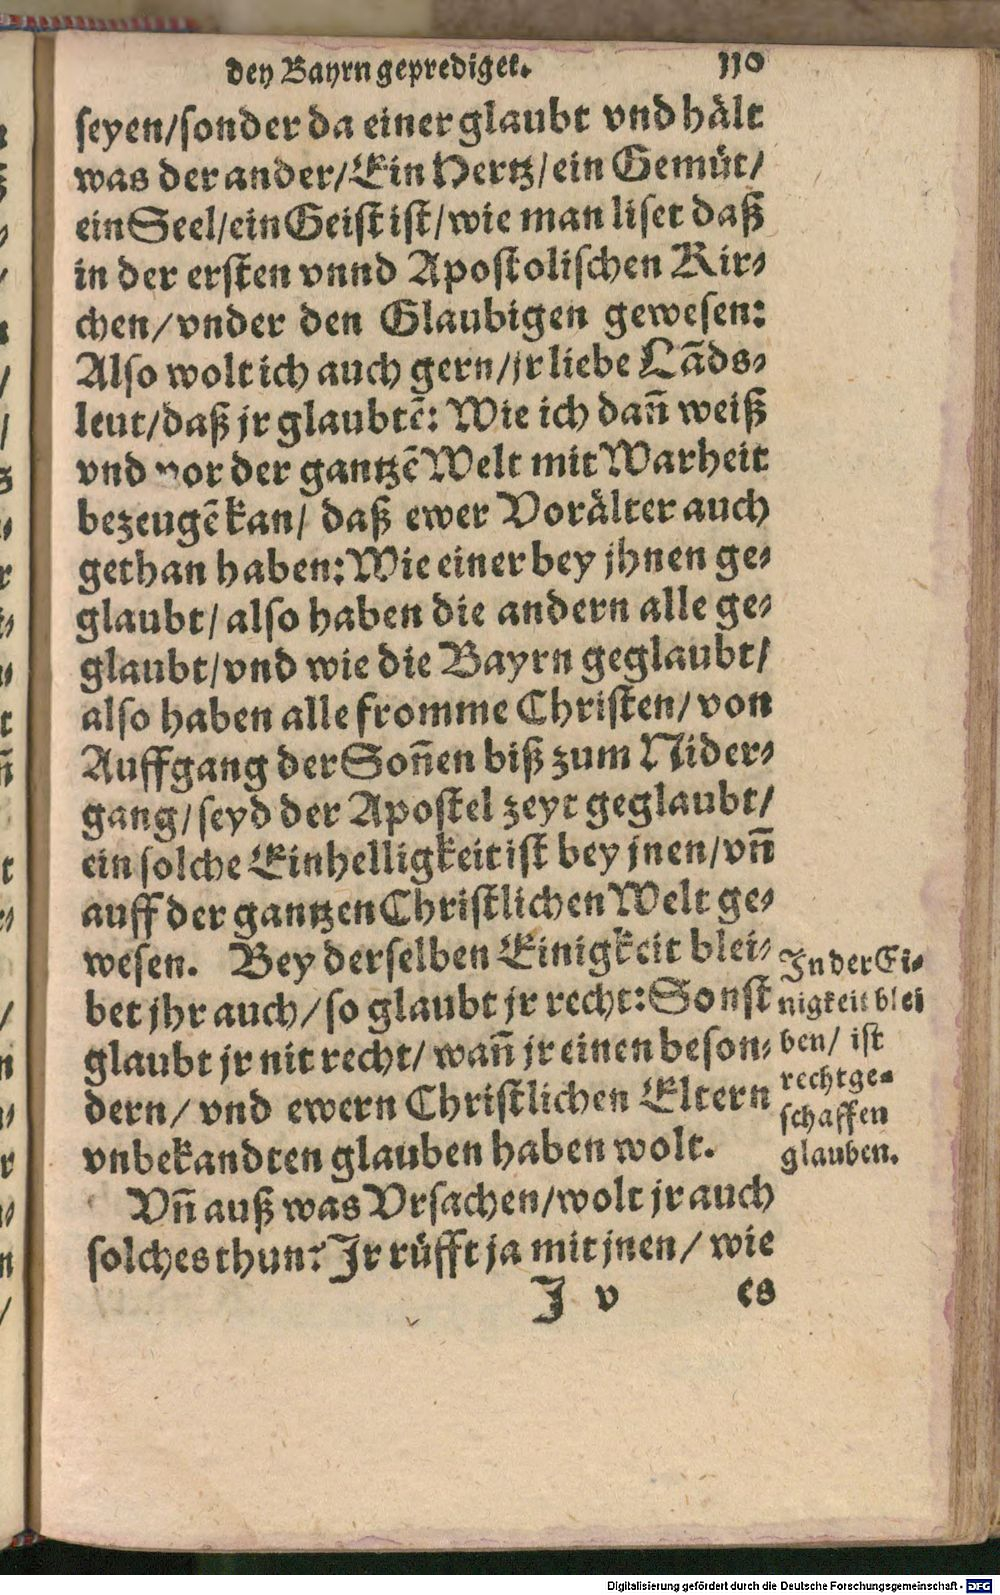 dey Bayrn geprediget. 110
seyen/sonder da einer glaubt vnd hält
was der ander/Ein Hertz/ein Gemüt/
ein Seel/ein Geist ist/wie man liset daß
in der ersten vnnd Apostolischen Kir-
chen/vnder den Glaubigen gewesen:
Also wolt ich auch gern/jr liebe Lãds-
leut/daß jr glaubtẽ: Wie ich dañ weiß
vnd vor der gantzẽ Welt mit Warheit
bezeugẽ kan/ daß ewer Vorälter auch
gethan haben: Wie einer bey jhnen ge-
glaubt/ also haben die andern alle ge-
glaubt/vnd wie die Bayrn geglaubt/
also haben alle fromme Christen/ von
Auffgang der Soñen biß zum Nider-
gang/ seyd der Apostel zeyt geglaubt/
ein solche Einhelligkeit ist bey jnen/vñ
auff der gantzen Christlichen Welt ge-
wesen. Bey derselben Einigkeit blei-
bet jhr auch/so glaubt jr recht: Sonst
glaubt jr nit recht/ wañ jr einen beson-
dern/ vnd ewern Christlichen Eltern
vnbekandten glauben haben wolt.
In der Ei-
nigkeit blei
ben/ ist
rechtge-
schaffen
glauben.
Vñ auß was Vrsachen/wolt jr auch
solches thun? Jr rüfft ja mit jnen/ wie
J v es
Digitalisierung gefördert durch die Deutsche Forschungsgemeinschaft - DFG